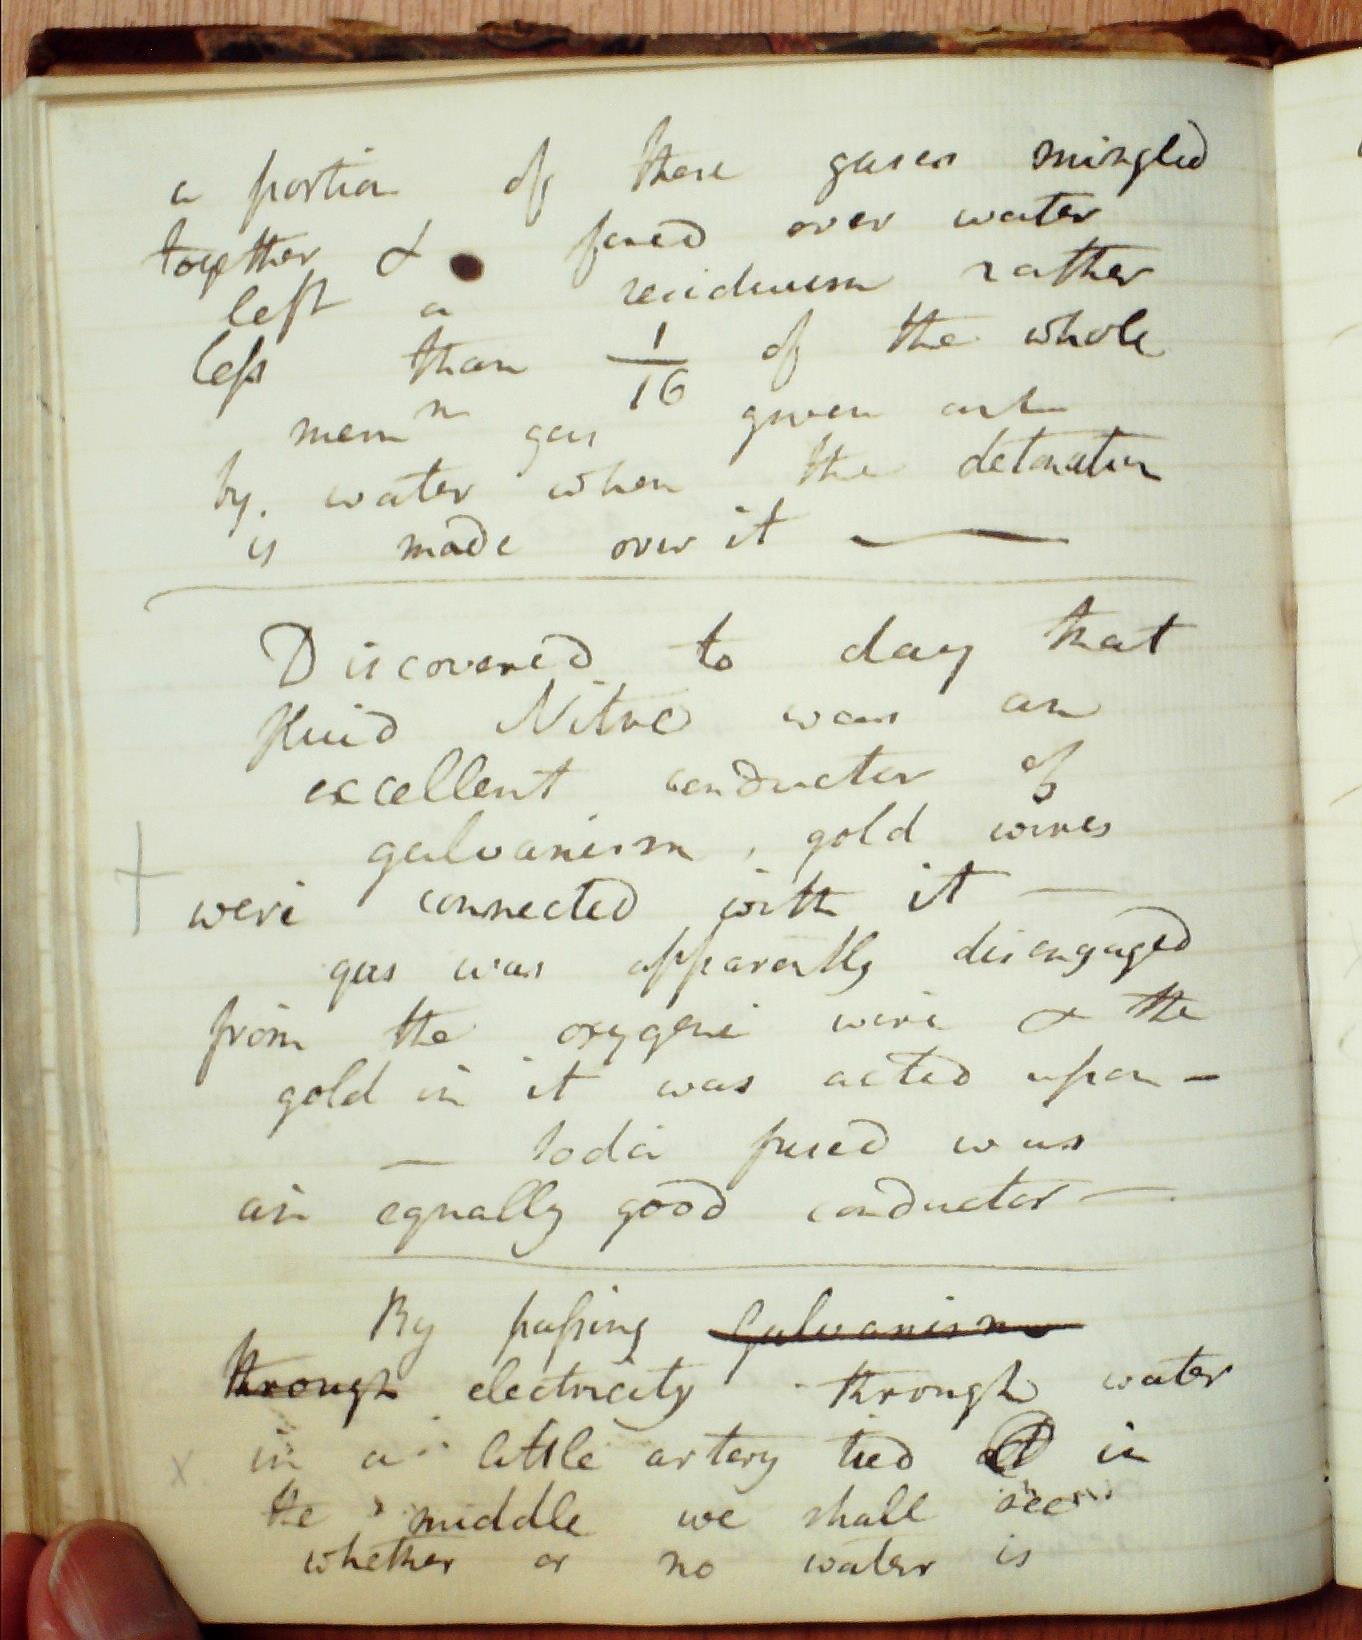 a portion of these gases mingled
together & fired over water
left a residuum rather
less than 1/16 of the whole
mem n gas given out
by. water when the detonation
is made over it —
Discovered to day that
fluid Nitre was an
excellent conductor of
galvanism, gold wires
were connected with it —
gas was apparently disengaged
from the oxygene wire & the
gold in it was acted upon —
— soda fused was
an equally good conductor —
By passing Galvanism
through electricity through water
in a little artery tied in
the middle we shall see
whether or no water is